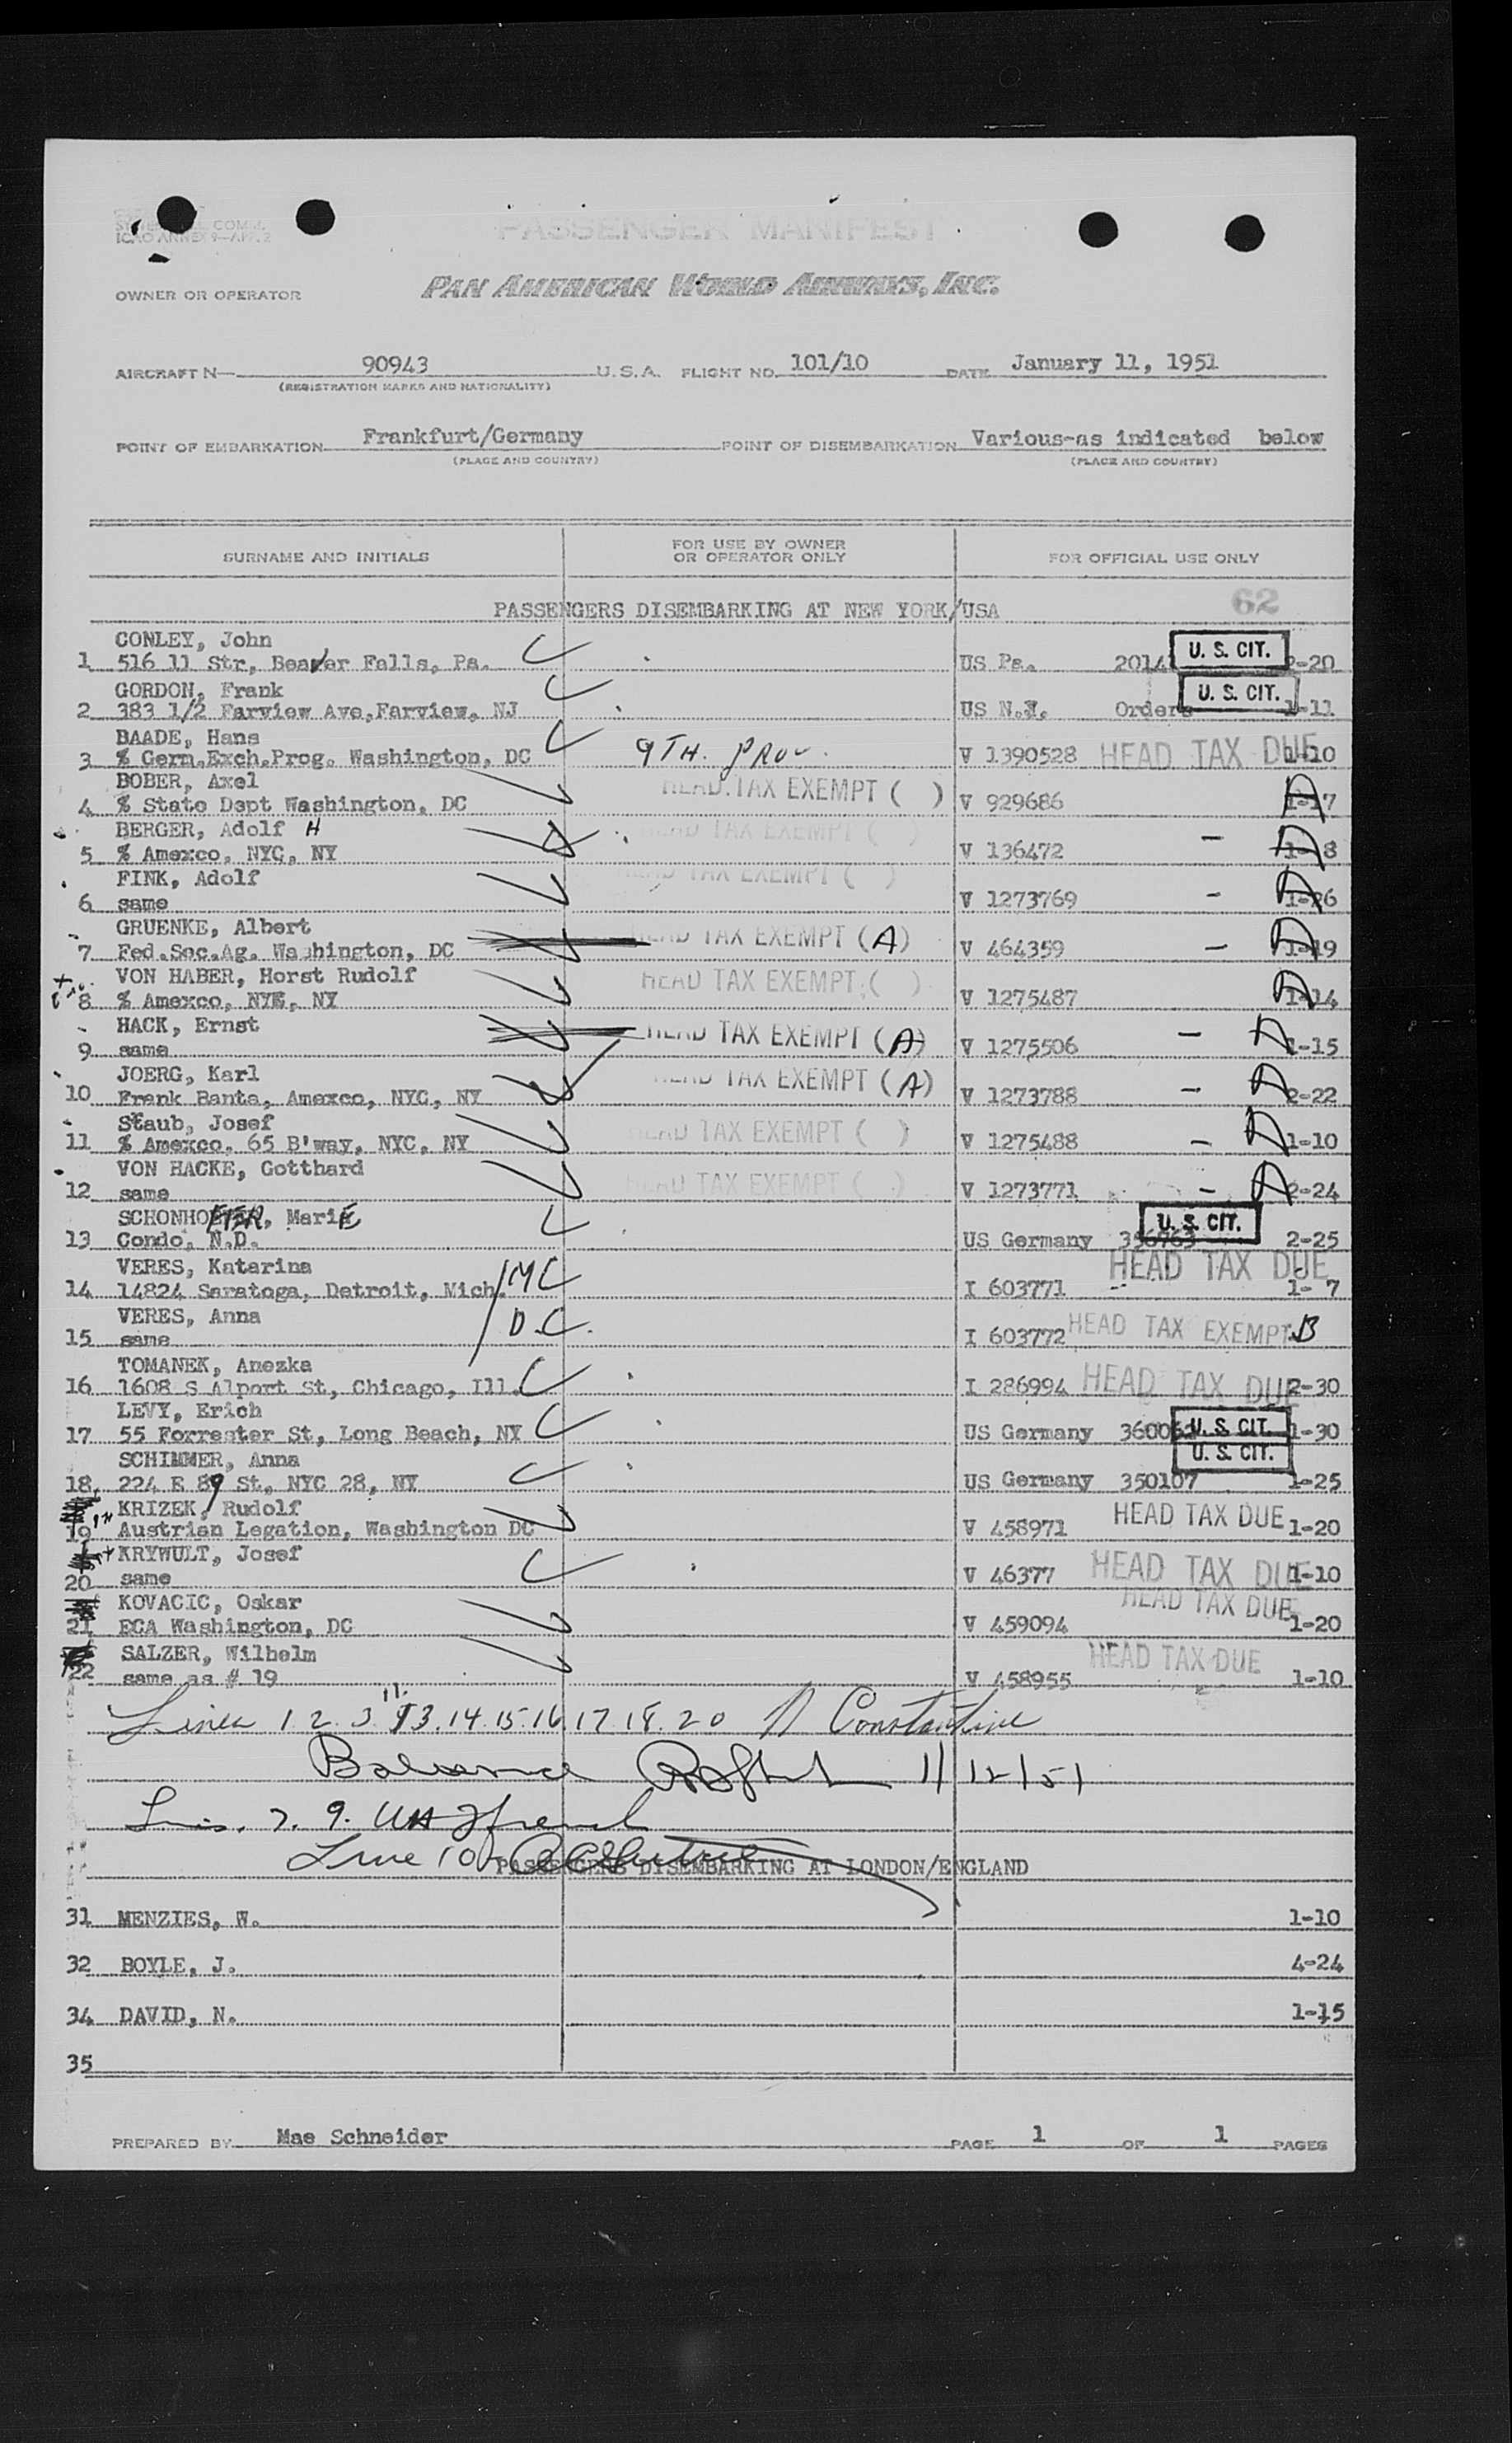 PASSENGER MANIFEST
ICAO ANNEX 9—APP. 2
OWNER OR OPERATOR PAN AMERICAN WORLD AIRWAYS, INC.
AIRCRAFT N— 90943 U.S.A. FLIGHT NO. 101/10 DATE January 11, 1951
(REGISTRATION MARKS AND NATIONALITY)
POINT OF EMBARKATION Frankfurt/Germany POINT OF DISEMBARKATION Various-as indicated below
(PLACE AND COUNTRY) (PLACE AND COUNTRY)
SURNAME AND INITIALS FOR USE BY OWNER OR OPERATOR ONLY FOR OFFICIAL USE ONLY
62
PASSENGERS DISEMBARKING AT NEW YORK/USA
CONLEY, John
1 516 11 Str, Beaver Falls, Pa. US Pa. 2014 U. S. CIT. 2-20
GORDON, Frank
2 383 1/2 Farview Ave,Farview, NJ US N.J. Orders U. S. CIT. 1-11
BAADE, Hans
3 % Germ.Exch.Prog. Washington, DC 9TH. PROV. V 1390528 HEAD TAX DUE 1-10
BOBER, Axel
4 % State Dept Washington, DC HEAD TAX EXEMPT ( ) V 929686 A 1-17
BERGER, Adolf H
5 % Amexco, NYC, NY HEAD TAX EXEMPT ( ) V 136472 - A 1-8
FINK, Adolf
6 same HEAD TAX EXEMPT ( ) V 1273769 - A 1-26
GRUENKE, Albert
7 Fed.Sec.Ag. Washington, DC HEAD TAX EXEMPT (A) V 464359 - A 1-19
VON HABER, Horst Rudolf
8 % Amexco, NYC, NY HEAD TAX EXEMPT ( ) V 1275487 A 1-14
HACK, Ernst
9 same HEAD TAX EXEMPT (A) V 1275506 - A 1-15
JOERG, Karl
10 Frank Banta, Amexco, NYC, NY HEAD TAX EXEMPT (A) V 1273788 - A 2-22
Staub, Josef
11 % Amexco, 65 B'way, NYC, NY HEAD TAX EXEMPT ( ) V 1275488 - A 1-10
VON HACKE, Gotthard
12 same HEAD TAX EXEMPT ( ) V 1273771 - A 2-24
SCHONHOEFER, MariE
13 Condo, N.D. US Germany 356763 U. S. CIT. 2-25
VERES, Katarina
14 14824 Saratoga, Detroit, Mich. MC I 603771 - HEAD TAX DUE 1- 7
VERES, Anna
15 same D.C. I 603772 HEAD TAX EXEMPT B
TOMANEK, Anezka
16 1608 S Alport St, Chicago, Ill. I 286994 HEAD TAX DUE 2-30
LEVY, Erich
17 55 Forrester St, Long Beach, NY US Germany U. S. CIT. 1-30
SCHIMMER, Anna
18 224 E 89 St, NYC 28, NY US Germany 350107 U. S. CIT. 1-25
KRIZEK, Rudolf
19 Austrian Legation, Washington DC V 458971 HEAD TAX DUE 1-20
KRYWULT, Josef
20 same V 46377 HEAD TAX DUE 1-10
KOVACIC, Oskar
21 ECA Washington, DC V 459094 HEAD TAX DUE 1-20
SALZER, Wilhelm
22 same as # 19 V 458955 HEAD TAX DUE 1-10
Lines 1 2 3 11. 13. 14. 15. 16 17 18. 20 Constantine
Balance 1/12/51
7. 9.
Line 10
PASSENGERS DISEMBARKING AT LONDON/ENGLAND
31 MENZIES, W. 1-10
32 BOYLE, J. 4-24
34 DAVID, N. 1-15
35
PREPARED BY Mae Schneider PAGE 1 OF 1 PAGES